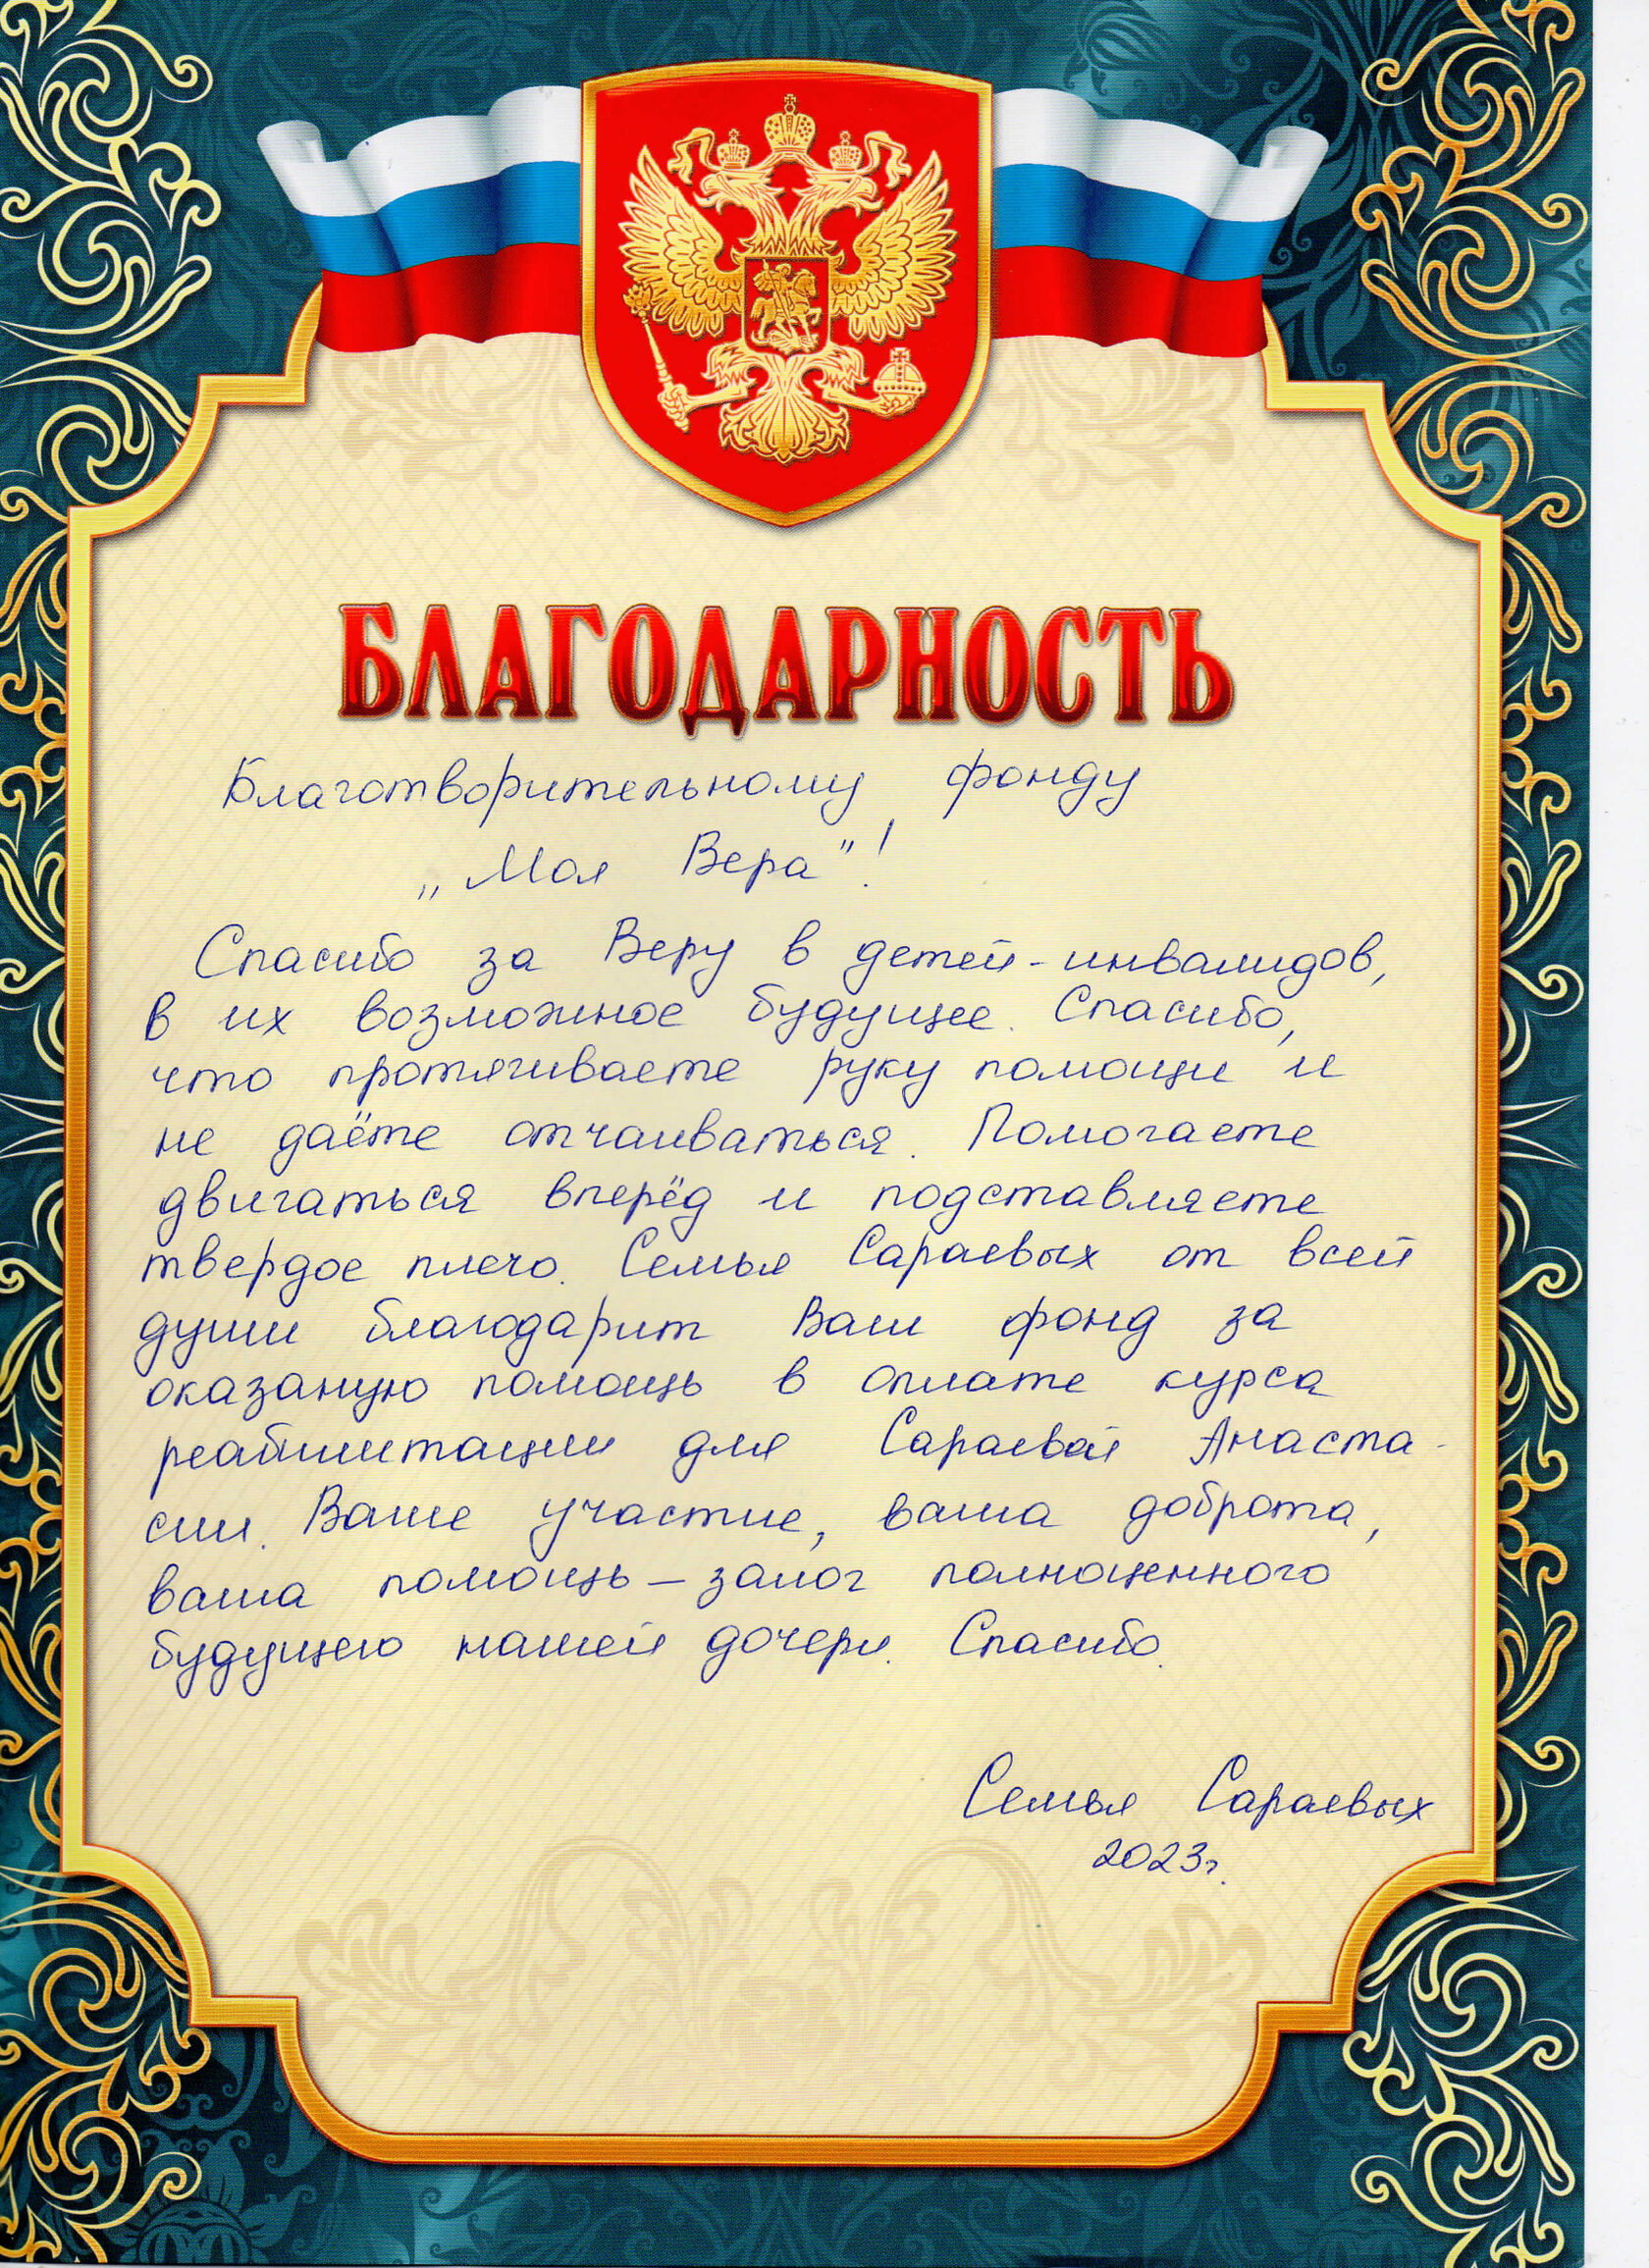 БЛАГОДАРНОСТЬ
Благотворительному фонду
„Моя Вера"!
Спасибо за Веру в детей-инвалидов,
в их возможное будущее. Спасибо,
что протягиваете руку помощи и
не даёте отчаиваться. Помогаете
двигаться вперёд и подставляете
твердое плечо. Семья Сараевых от всей
души благодарит Ваш фонд за
оказаную помощь в оплате курса
реабилитации для Сараевой Анаста-
сии. Ваше участие, ваша доброта,
ваша помощь – залог полноценного
будущего нашей дочери. Спасибо.
Семья Сараевых
2023г.